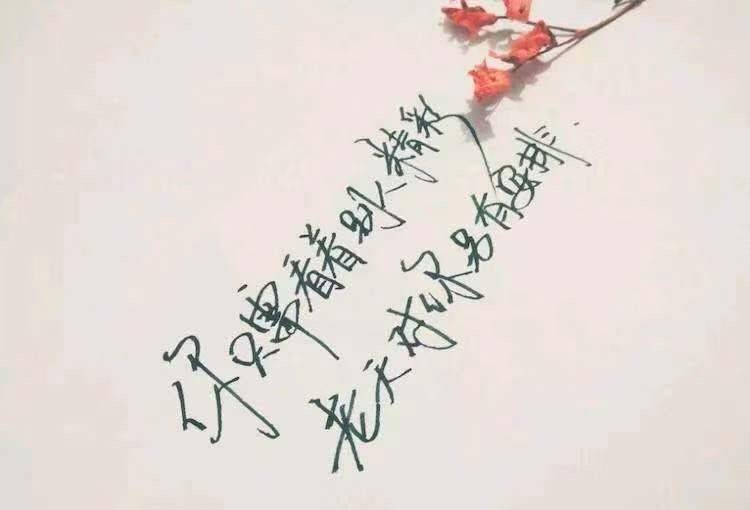 你只需看着别人精彩,
老天对你另有安排